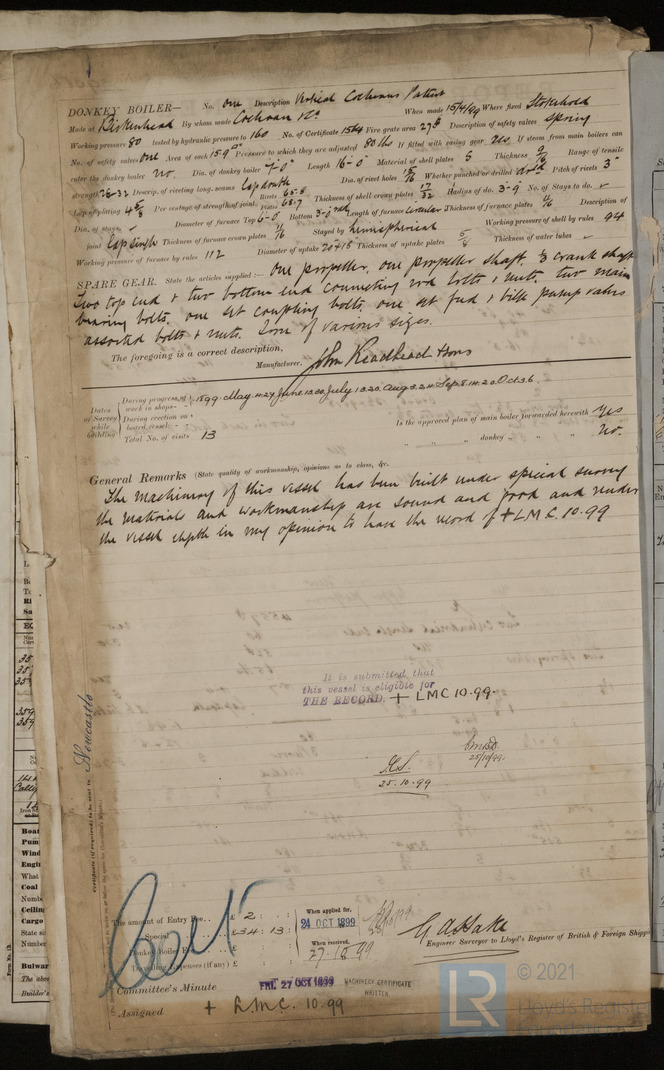 DONKEY BOILER— No. one Description Vertical Cochrans Patent
Made at Birkenhead By whom made Cochran & Co When made 15/4/99 Where fixed Stokehold
Working pressure 80 tested by hydraulic pressure to 160 No. of Certificate 1564 Fire grate area 27 Description of safety valves Spring
No. of safety valves one Area of each 15.9 Pressure to which they are adjusted 80 lbs If fitted with easing gear yes If steam from main boilers can
enter the donkey boiler no Dia. of donkey boiler 7-0" Length 16-0" Material of shell plates S Thickness 9/16 Range of tensile
strength 28-32 Descrip. of riveting long. seams Lap double Dia. of rivet holes 15/16 Whether punched or drilled Pitch of rivets 3"
Lap of plating 4 5/8 Per centage of strength of joint Rivets 65.8 Plates 68.7 Thickness of shell crown plates 17/32 Radius of do. 3-9 No. of Stays to do. -
Dia. of stays. - Diameter of furnace Top 6-0 Bottom Length of furnace circular Thickness of furnace plates Description of
joint Lap Single Thickness of furnace crown plates Stayed by hemispherical Working pressure of shell by rules 94
Working pressure of furnace by rules 112 Diameter of uptake Thickness of uptake plates 5/8 Thickness of water tubes -
SPARE GEAR. State the articles supplied:— one propeller, one propeller shaft, crank shaft
Two top end & two bottom end connecting rod bolts & nuts. two main
bearing bolts, one set coupling bolts, one set feed & bilge pump valves
assorted bolts & nuts. Iron of various sizes.
The foregoing is a correct description,
Manufacturer. John Readhead & Sons
Dates of Survey while building
During progress of work in shops - - 1899 May 4.27 June 13.20 July 10.20. Aug. 2.24 Sep 8.14.20. Oct 3.6.
During erection on board vessel - - -
Total No. of visits 13
Is the approved plan of main boiler forwarded herewith Yes
" " " donkey " " " No.
General Remarks (State quality of workmanship, opinions as to class, &c.
The machinery of this vessel has been built under special survey
the materials and workmanship are sound and good and renders
the vessel eligible in my opinion to have the record of + LMC. 10.99
It is submitted that
this vessel is eligible for
THE RECORD. + LMC 10.99.
25/10/99.
25.10.99
Certificate (if required) to be sent to Newcastle
The amount of Entry Fee.. £ 2 : :
Special £ 34 : 13 :
Donkey Boiler Fee £
Travelling Expenses (if any) £
When applied for.
24 OCT 1899
When received.
27.10.99
Engineer Surveyor to Lloyd's Register of British & Foreign Shipping
Committee's Minute FRI. 27 OCT 1899
MACHINERY CERTIFICATE
WRITTEN.
Assigned + LMC. 10.99
Form No. 13.
LR
© 2021
Lloyd's Register
Foundation